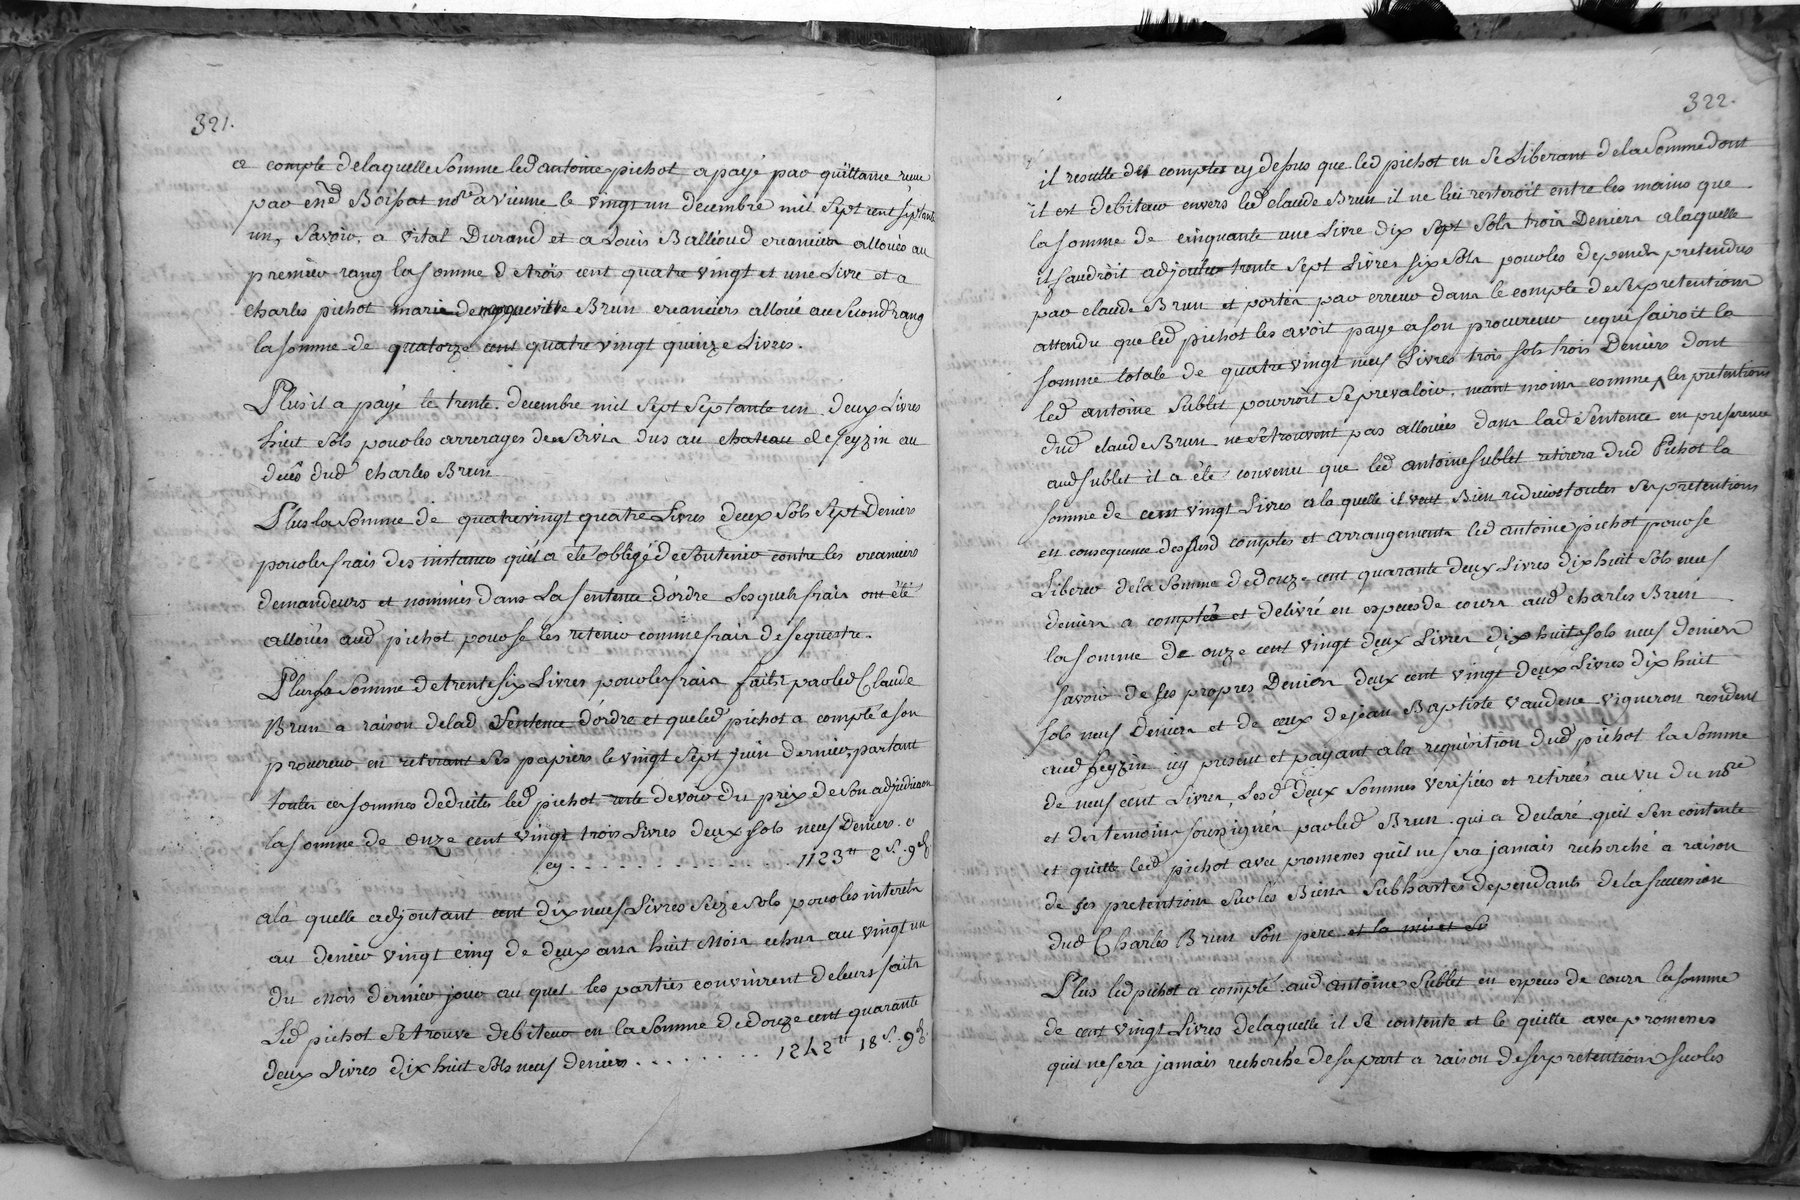 321.
a compte delaquelle somme led antoine pichot a payé par quittance reçue
par me Boissat nore a vienne le vingt un decembre mil sept cent septante
un, savoir, a vital Durand et a Louis Balleoud creanciers alloués au
premier rang la somme de trois cent quatre vingt et une Livre et a
charles pichot marie Brun creanciers alloué au second rang
la somme de quatorze cent quatre vingt quinze Livres.
Plus il a payé le trente decembre mil sept septante un deux Livres
huit sols pour les arrerages des servis dus au chateau de feyzin au
decés dud charles Brun
Plus la somme de quatre vingt quatre Livres deux sols sept Deniers
pour les frais des instances qu'il a été obligé de soutenir contre les creanciers
demandeurs et nommés dans la sentence d'ordre Lesquels frais ont été
alloués aud pichot pour se les retenir comme frais de sequestre.
Plus la somme de trente six Livres pour les frais faits par led Claude
Brun a raison de lad sentence d'ordre et que led pichot a compté a son
procureur en retirant ses papiers le vingt sept juin dernier, partant
toutes ces sommes deduites led pichot reste devoir du prix de son adjudication
la somme de onze cent vingt trois Livres deux sols neuf Deniers
cy . . . . . . . . . . 1123 tt 2 s. 9 d
a la quelle adjoutant cent dix neuf Livres seize sols pour les interets
au denier vingt cinq de deux ans huit mois echus au vingt un
du mois dernier jour au quel les parties convinrent de leurs faits
Led pichot se trouve debiteur en la somme de douze cent quarante
deux Livres dix huit sols neuf deniers . . . . . . . . . 1242 tt 18 s. 9 d.
322.
il resulte des comptes cy dessus que led pichot en se Liberant de la somme dont
il est debiteur envers led claude Brun il ne lui resteroit entre les mains que
la somme de cinquante une Livre dix sept sols trois Deniers a laquelle
il faudroit adjouter trente sept Livres six sols pour les depens pretendus
par claude Brun et portés par erreur dans le compte de ses pretentions
attendu que led pichot les avoit payé a son procureur ce qui fairoit la
somme totale de quatre vingt neuf Livres trois sols trois Deniers dont
led antoine Sublet pourroit se prevaloir, neant moins comme les pretentions
dud claude Brun ne se trouvent pas allouées dans lad sentence en preference
aud Sublet il a été convenu que led antoine Sublet retirera dud Pichot la
somme de cent vingt Livres a la quelle il veut Bien reduire toutes ses pretentions
en consequence desfusd comptes et arrangements led antoine pichot pour se
Liberer de la somme de douze cent quarante deux Livres dix huit sols neuf
deniers a compté et delivré en especes de cours aud charles Brun
la somme de onze cent vingt deux Livres dix huit sols neuf deniers
savoir de ses propres Deniers deux cent vingt deux Livres dix huit
sols neuf Deniers et de ceux de jean Baptiste vaudene vigneron resident
aud feyzin icy present et payant a la requisition dud pichot la somme
de neuf cent Livres, Lesd deux sommes verifiées et retirées au vu du nore
et des temoins soussignés par led Brun qui a declaré qu'il s'en contente
et quitte led pichot avec promesses qu'il ne sera jamais recherché a raison
de ses pretentions sur les Biens Subhastés dependants de la succession
dud Charles Brun son pere et la
Plus led pichot a compté aud antoine Sublet en especes de cours la somme
de cent vingt Livres de laquelle il se contente et le quitte avec promesses
qu'il ne sera jamais recherché de sa part a raison de ses pretentions sur les